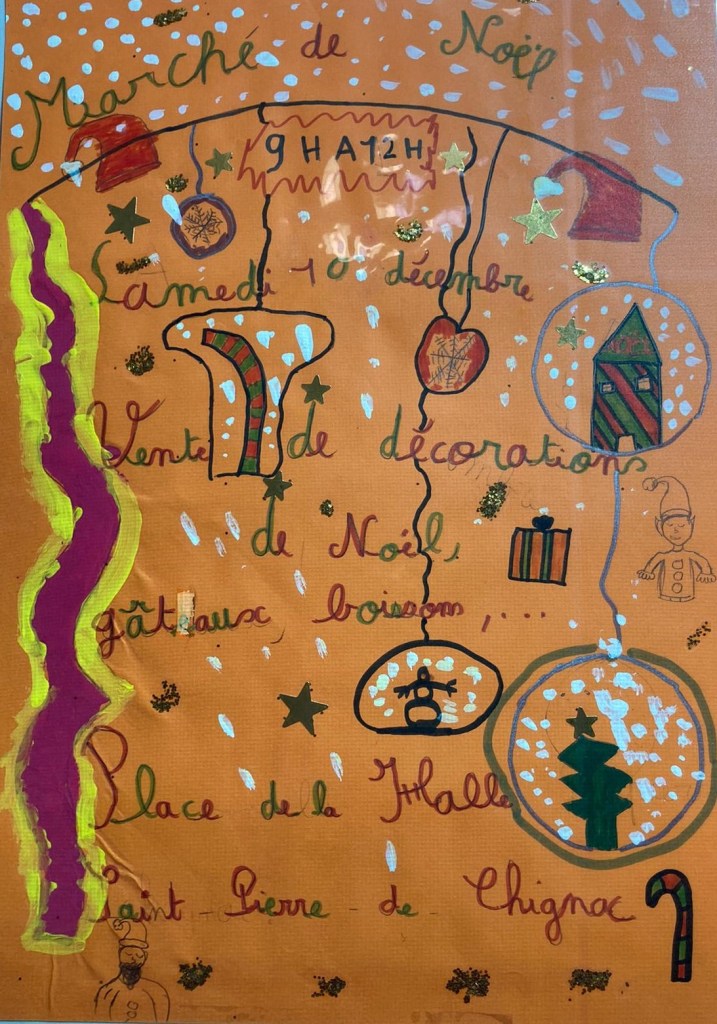 Marché de Noël
9 H A 12 H
Samedi 10 décembre
NOEL
Vente de décorations
de Noël,
gâteaux, boissons, ...
Place de la Halle
Saint-Pierre-de-Chignac